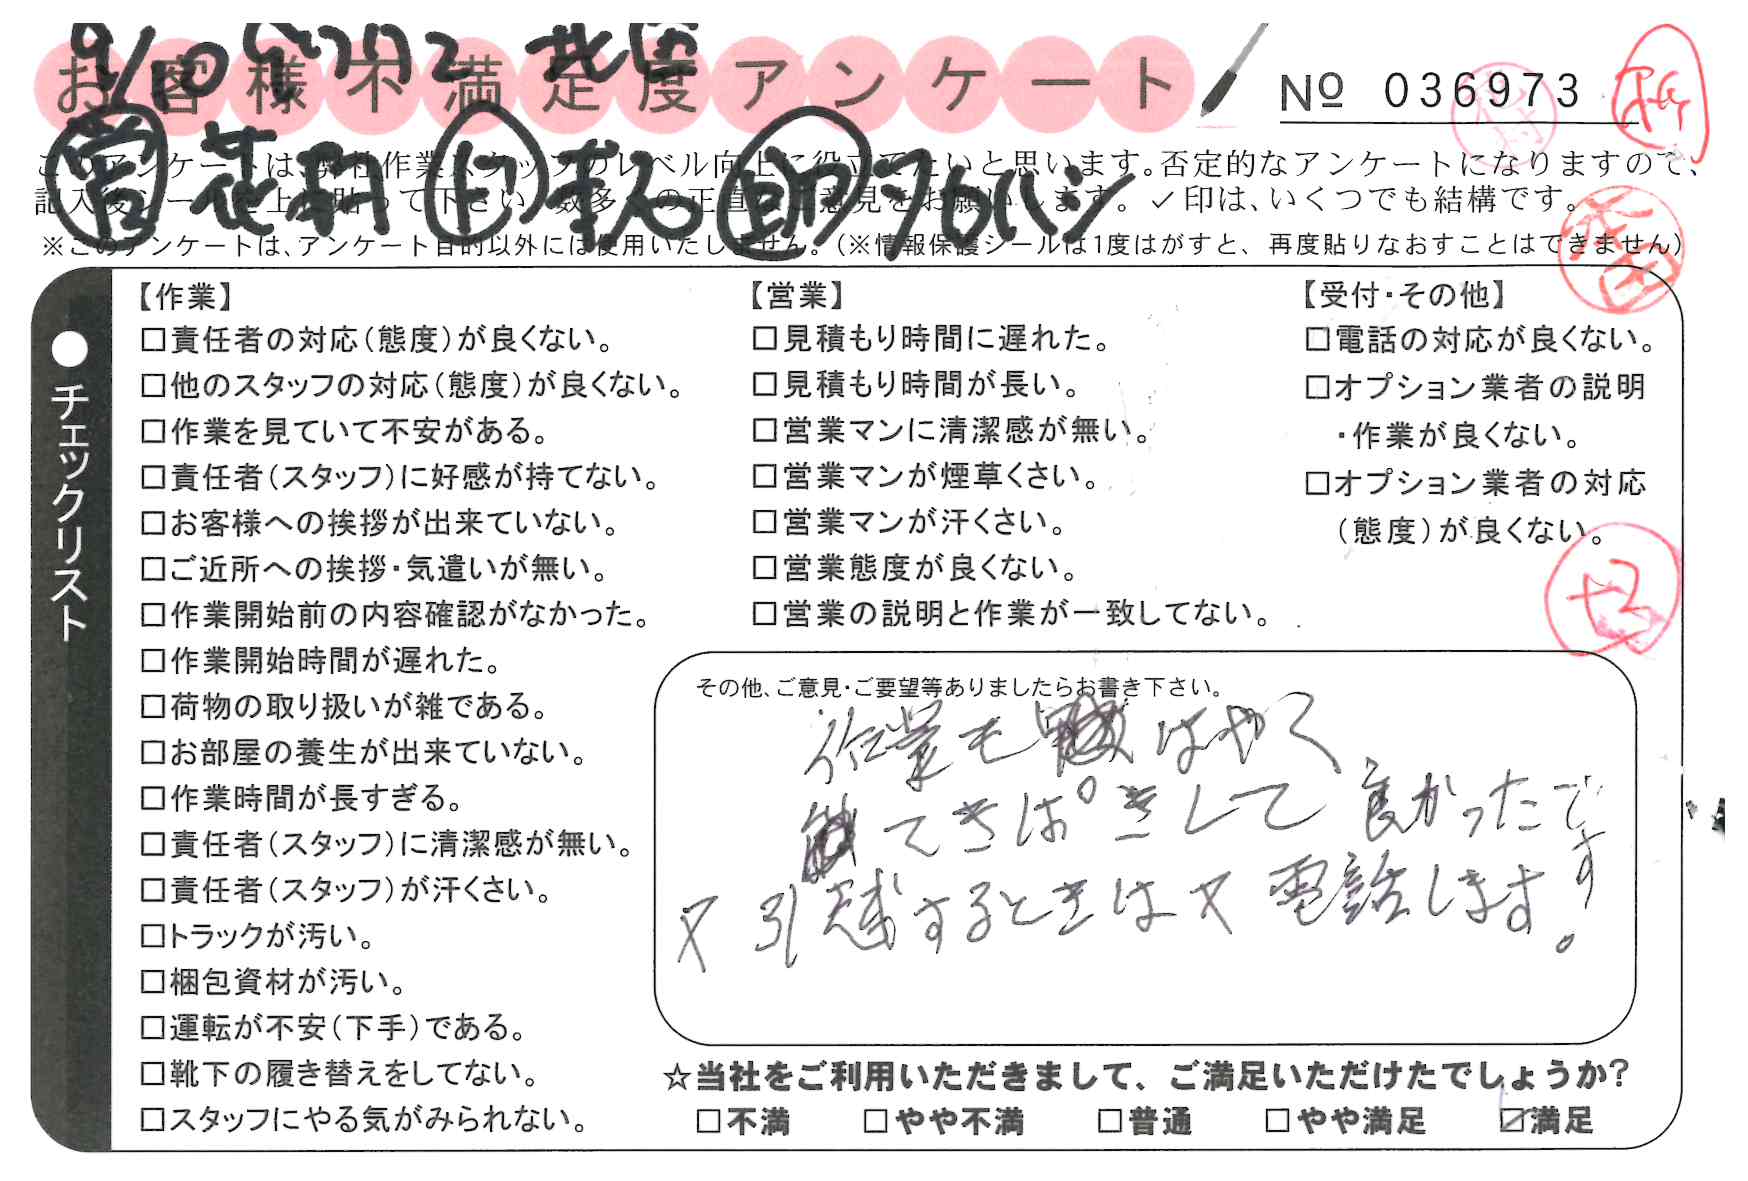 お客様不満足度アンケート
№ 036973
このアンケートは、弊社作業スタッフのレベル向上に役立てたいと思います。否定的なアンケートになりますので、
記入後シールを上に貼って下さい。数多くの正直なご意見をお願いします。✓印は、いくつでも結構です。
※このアンケートは、アンケート目的以外には使用いたしません。(※情報保護シールは1度はがすと、再度貼りなおすことはできません)
●チェックリスト
【作業】
□責任者の対応(態度)が良くない。
□他のスタッフの対応(態度)が良くない。
□作業を見ていて不安がある。
□責任者(スタッフ)に好感が持てない。
□お客様への挨拶が出来ていない。
□ご近所への挨拶・気遣いが無い。
□作業開始前の内容確認がなかった。
□作業開始時間が遅れた。
□荷物の取り扱いが雑である。
□お部屋の養生が出来ていない。
□作業時間が長すぎる。
□責任者(スタッフ)に清潔感が無い。
□責任者(スタッフ)が汗くさい。
□トラックが汚い。
□梱包資材が汚い。
□運転が不安(下手)である。
□靴下の履き替えをしてない。
□スタッフにやる気がみられない。
【営業】
□見積もり時間に遅れた。
□見積もり時間が長い。
□営業マンに清潔感が無い。
□営業マンが煙草くさい。
□営業マンが汗くさい。
□営業態度が良くない。
□営業の説明と作業が一致してない。
【受付・その他】
□電話の対応が良くない。
□オプション業者の説明
・作業が良くない。
□オプション業者の対応
(態度)が良くない。
その他、ご意見・ご要望等ありましたらお書き下さい。
作業も はやく
てきぱきして 良かったです
又 引越するときは又 電話します。
☆当社をご利用いただきまして、ご満足いただけたでしょうか?
□不満 □やや不満 □普通 □やや満足 ☑満足